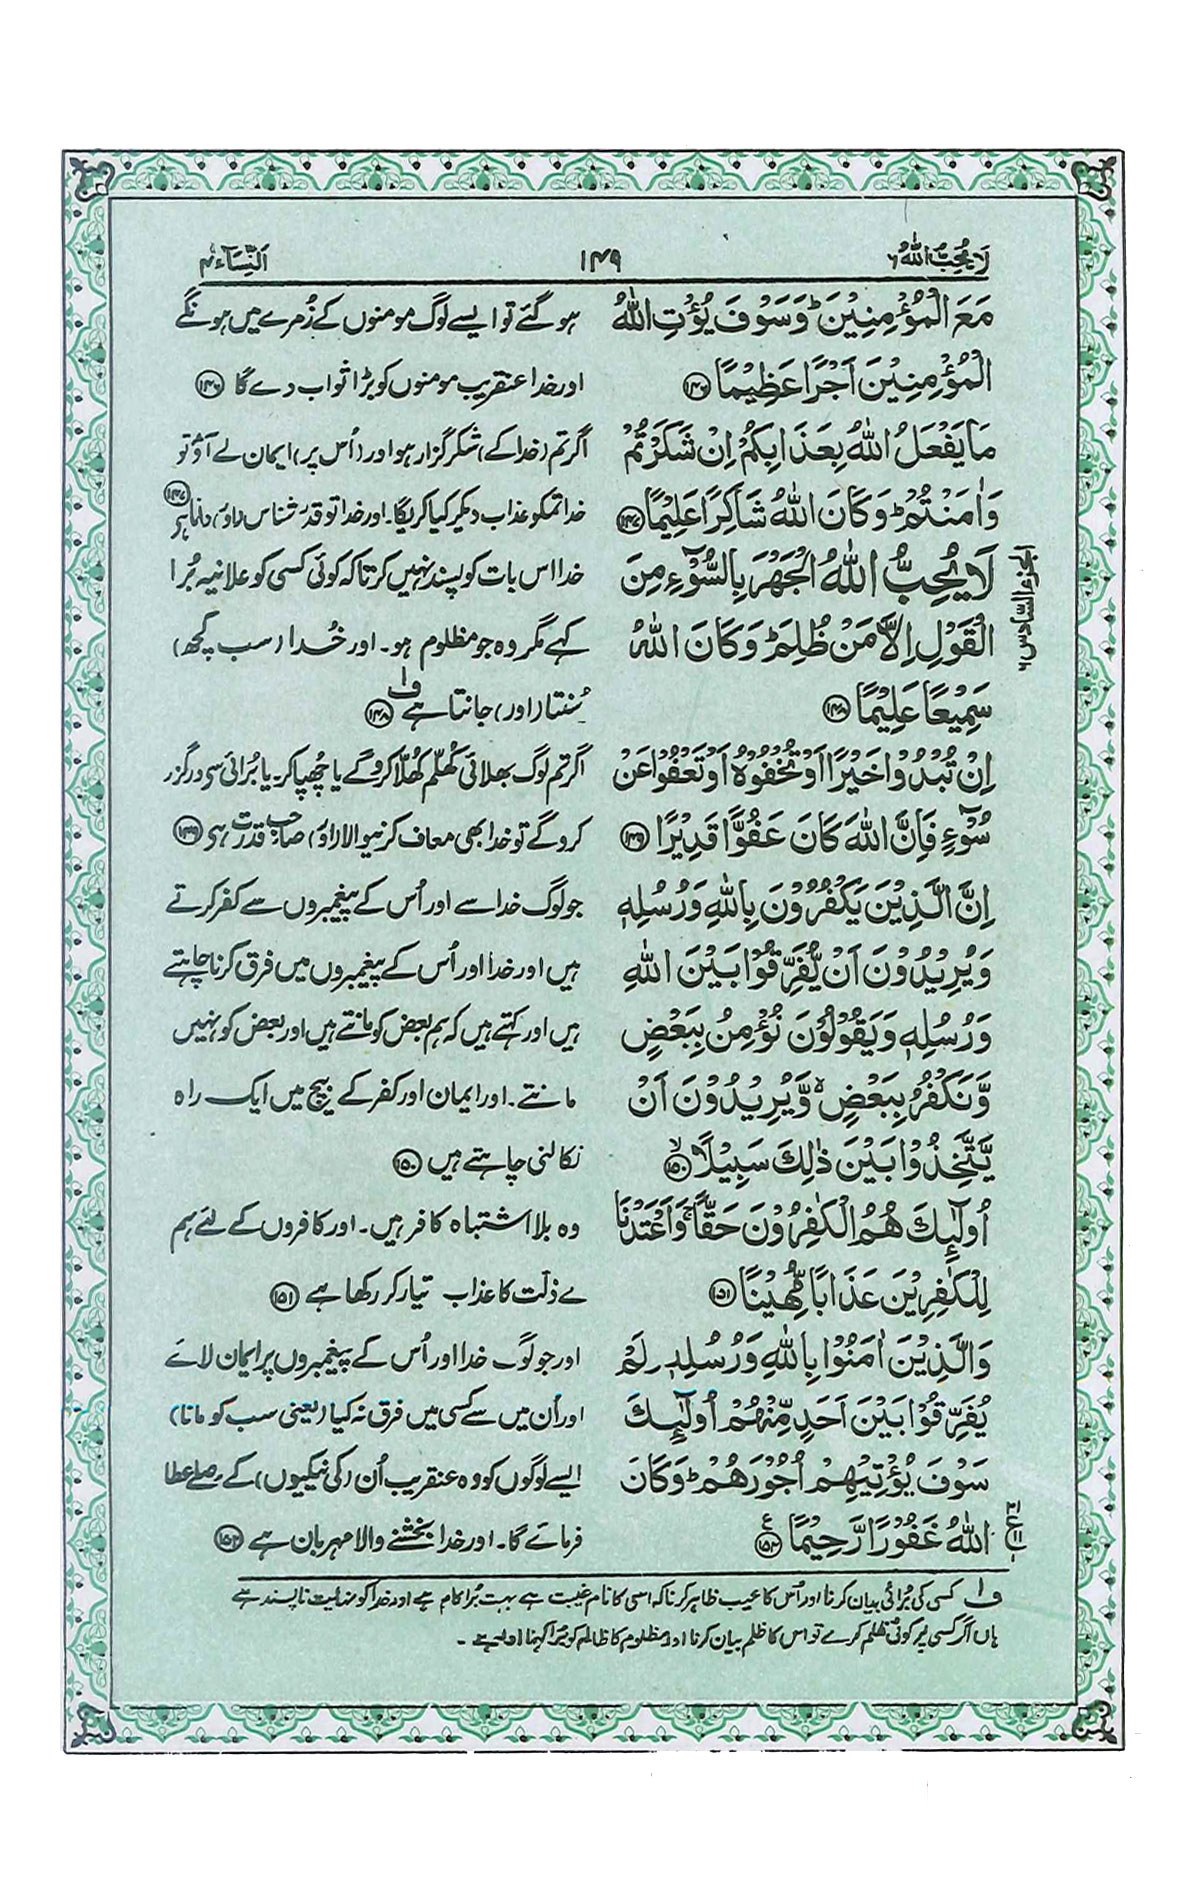 لَا يُحِبُّ اللّٰهُ ۶
۱۴۹
اَلنِّسَآء ۴
مَعَ الْمُؤْمِنِيْنَ ؕ وَسَوْفَ يُؤْتِ اللّٰهُ
الْمُؤْمِنِيْنَ اَجْرًا عَظِيْمًا ﴿۱۴۶﴾
مَا يَفْعَلُ اللّٰهُ بِعَذَابِكُمْ اِنْ شَكَرْتُمْ
وَاٰمَنْتُمْ ؕ وَكَانَ اللّٰهُ شَاكِرًا عَلِيْمًا ﴿۱۴۷﴾
لَا يُحِبُّ اللّٰهُ الْجَهْرَ بِالسُّوْٓءِ مِنَ
الْقَوْلِ اِلَّا مَنْ ظُلِمَ ؕ وَكَانَ اللّٰهُ
سَمِيْعًا عَلِيْمًا ﴿۱۴۸﴾
اِنْ تُبْدُوْا خَيْرًا اَوْ تُخْفُوْهُ اَوْ تَعْفُوْا عَنْ
سُوْٓءٍ فَاِنَّ اللّٰهَ كَانَ عَفُوًّا قَدِيْرًا ﴿۱۴۹﴾
اِنَّ الَّذِيْنَ يَكْفُرُوْنَ بِاللّٰهِ وَرُسُلِهٖ
وَيُرِيْدُوْنَ اَنْ يُّفَرِّقُوْا بَيْنَ اللّٰهِ
وَرُسُلِهٖ وَيَقُوْلُوْنَ نُؤْمِنُ بِبَعْضٍ
وَّنَكْفُرُ بِبَعْضٍ ۙ وَّيُرِيْدُوْنَ اَنْ
يَّتَّخِذُوْا بَيْنَ ذٰلِكَ سَبِيْلًا ﴿۱۵۰﴾ ۙ
اُولٰٓئِكَ هُمُ الْكٰفِرُوْنَ حَقًّا ۚ وَاَعْتَدْنَا
لِلْكٰفِرِيْنَ عَذَابًا مُّهِيْنًا ﴿۱۵۱﴾
وَالَّذِيْنَ اٰمَنُوْا بِاللّٰهِ وَرُسُلِهٖ وَلَمْ
يُفَرِّقُوْا بَيْنَ اَحَدٍ مِّنْهُمْ اُولٰٓئِكَ
سَوْفَ يُؤْتِيْهِمْ اُجُوْرَهُمْ ؕ وَكَانَ
اللّٰهُ غَفُوْرًا رَّحِيْمًا ﴿۱۵۲﴾ ع
الجزء السادس ۶
ہو گئے تو ایسے لوگ مومنوں کے زُمرے میں ہونگے
اور خدا عنقریب مومنوں کو بڑا ثواب دے گا ﴿۱۴۶﴾
اگر تم (خدا کے) شکر گزار ہو اور (اُس پر) ایمان لے آؤ تو
خدا تمکو عذاب دیکر کیا کریگا۔ اور خدا تو قدر شناس (اور) دانا ہے ﴿۱۴۷﴾
خدا اس بات کو پسند نہیں کرتا کہ کوئی کسی کو علانیہ بُرا
کہے مگر وہ جو مظلوم ہو۔ اور خُدا (سب کچھ)
سُنتا (اور) جانتا ہے ف۱ ﴿۱۴۸﴾
اگر تم لوگ بھلائی کُھلّم کُھلّا کرو گے یا چُھپا کر۔ یا بُرائی سے درگزر
کرو گے تو خدا بھی معاف کرنیوالا (اور) صاحب قدرت ہے ﴿۱۴۹﴾
جو لوگ خدا سے اور اُس کے پیغمبروں سے کفر کرتے
ہیں اور خدا اور اُس کے پیغمبروں میں فرق کرنا چاہتے
ہیں اور کہتے ہیں کہ ہم بعض کو مانتے ہیں اور بعض کو نہیں
مانتے۔ اور ایمان اور کفر کے بیچ میں ایک راہ
نکالنی چاہتے ہیں ﴿۱۵۰﴾
وہ بلا اشتباہ کافر ہیں۔ اور کافروں کے لئے ہم
نے ذلّت کا عذاب تیار کر رکھا ہے ﴿۱۵۱﴾
اور جو لوگ خدا اور اُس کے پیغمبروں پر ایمان لائے
اور اُن میں سے کسی میں فرق نہ کیا (یعنی سب کو مانا)
ایسے لوگوں کو وہ عنقریب اُن (کی نیکیوں) کے صلے عطا
فرمائے گا۔ اور خدا بخشنے والا مہربان ہے ﴿۱۵۲﴾
ف۱ کسی کی بُرائی بیان کرنا اور اُس کا عیب ظاہر کرنا کہ اسی کا نام غیبت ہے بہت بُرا کام ہے اور خدا کو نہایت ناپسند ہے
ہاں اگر کسی پر کوئی ظلم کرے تو اس کا ظلم بیان کرنا اور مظلوم کا ظالم کو بُرا کہنا روا ہے۔